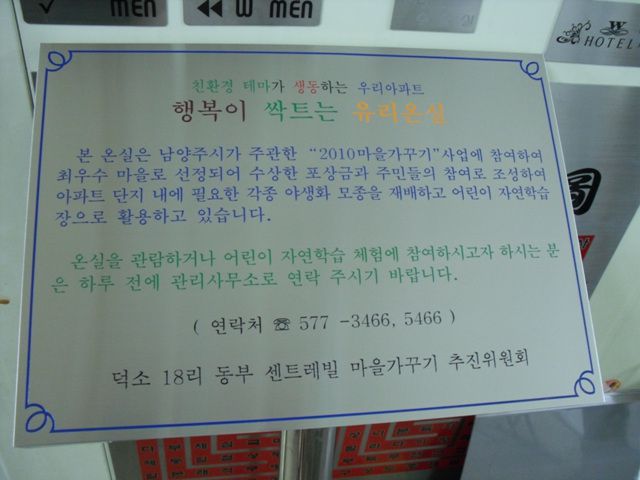 MEN
W MEN
W
HOTEL
친환경 테마가 생동하는 우리아파트
행복이 싹트는 유리온실
본 온실은 남양주시가 주관한 “2010마을가꾸기”사업에 참여하여
최우수 마을로 선정되어 수상한 포상금과 주민들의 참여로 조성하여
아파트 단지 내에 필요한 각종 야생화 모종을 재배하고 어린이 자연학습
장으로 활용하고 있습니다.
온실을 관람하거나 어린이 자연학습 체험에 참여하시고자 하시는 분
은 하루 전에 관리사무소로 연락 주시기 바랍니다.
( 연락처 ☏ 577 -3466, 5466 )
덕소 18리 동부 센트레빌 마을가꾸기 추진위원회